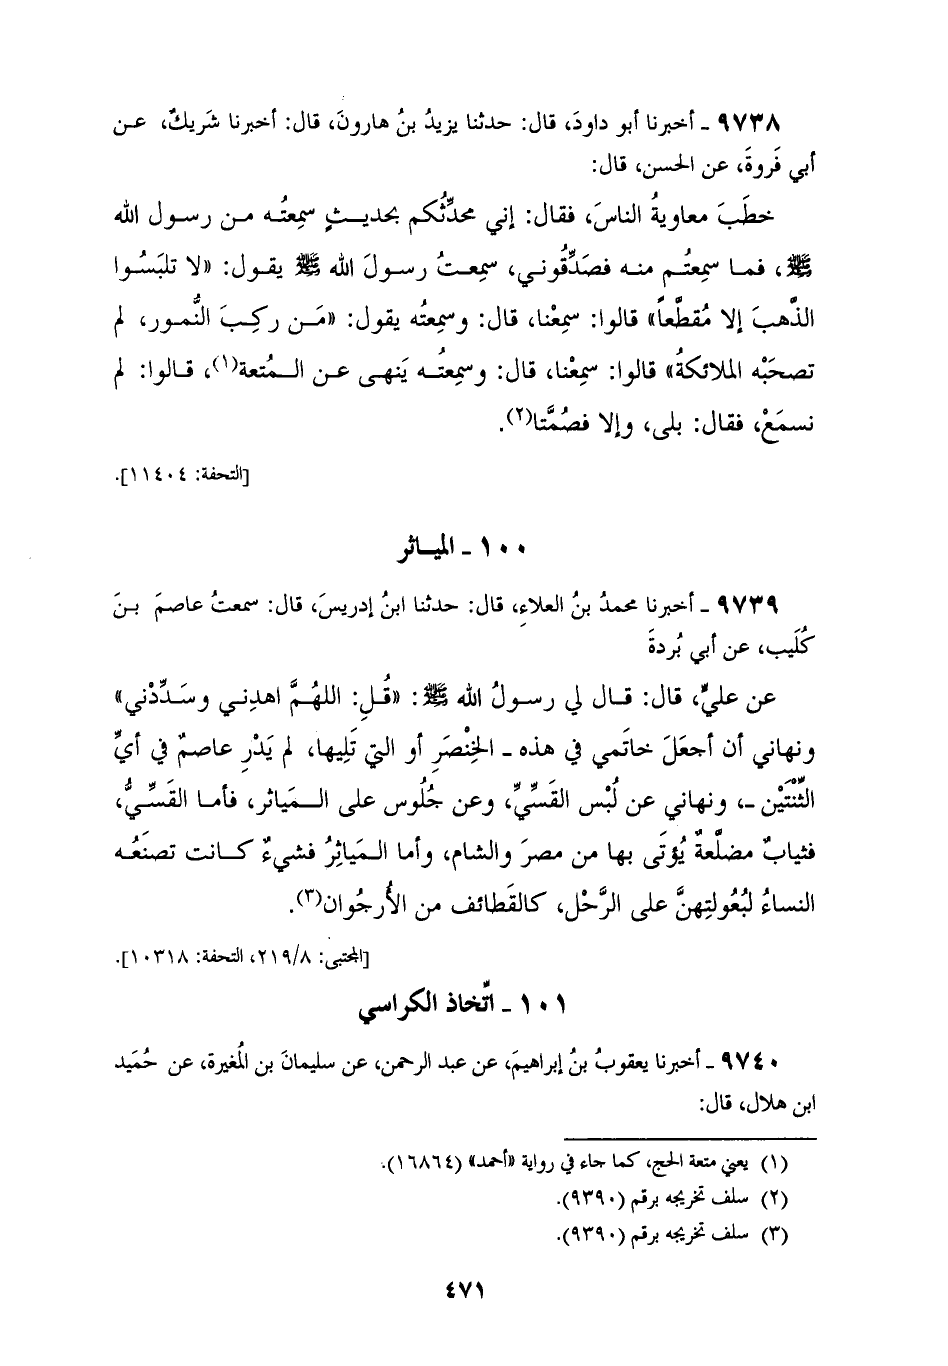 ٩٧٣٨ ـ أخبرنا أبو داودَ، قال: حدثنا يزيدُ بنُ هارونَ، قال: أخبرنا شَريكٌ، عـن
أبي فَروةَ، عن الحسن، قال:
خطَبَ معاويةُ الناسَ، فقال: إني محدِّثُكم بحديـثٍ سمِعتُـه مـن رسـول الله
ﷺ، فمـا سمِعتُـم منـه فصَدِّقُونـي، سمِعـتُ رسـولَ الله ﷺ يقـول: «لا تلبَسُـوا
الذَّهبَ إلا مُقطَّعاً» قالوا: سمِعْنا، قال: وسمِعتُه يقول: «مَـن ركِـبَ النُّمـور، لم
تصحَبْه الملائكةُ» قالوا: سمِعْنا، قال: وسمِعتُـه يَنهـى عـن الـمُتعة(١)، قـالوا: لم
نسمَعْ، فقال: بلى، وإلا فصُمَّتا(٢).
[التحفة: ١١٤٠٤].
١٠٠ ـ الميـاثر
٩٧٣٩ ـ أخبرنا محمدُ بنُ العلاءِ، قال: حدثنا ابنُ إدريسَ، قال: سمعتُ عاصمَ بـنَ
كُلَيب، عن أبي بُردةَ
عن عليٍّ، قال: قـال لي رسـولُ الله ﷺ: «قُـلِ: اللهُـمَّ اهدِنـي وسَـدِّدْني»
ونهاني أن أجعَلَ خاتَمي في هذه ـ الخِنْصَرِ أو التي تَلِيها، لم يَدْرِ عاصمٌ في أيِّ
الثِّنْتَيْن ـ، ونهاني عن لُبْس القَسِّيِّ، وعن جُلُوس على الـمَياثر، فأما القَسِّيُّ،
فثيابٌ مضلَّعةٌ يُؤتَى بها من مصرَ والشام، وأما الـمَياثِرُ فشيءٌ كـانت تصنَعُـه
النساءُ لبُعُولتِهنَّ على الرَّحْل، كالقَطائف من الأُرجُوان(٣).
[المجتبى: ٢١٩/٨، التحفة: ١٠٣١٨].
١٠١ ـ اتِّخاذ الكراسي
٩٧٤٠ ـ أخبرنا يعقوبُ بنُ إبراهيمَ، عن عبد الرحمن، عن سليمانَ بن المُغيرة، عن حُمَيد
ابن هلال، قال:
(١) يعني متعة الحج، كما جاء في رواية «أحمد» (١٦٨٦٤).
(٢) سلف تخريجه برقم (٩٣٩٠).
(٣) سلف تخريجه برقم (٩٣٩٠).
٤٧١